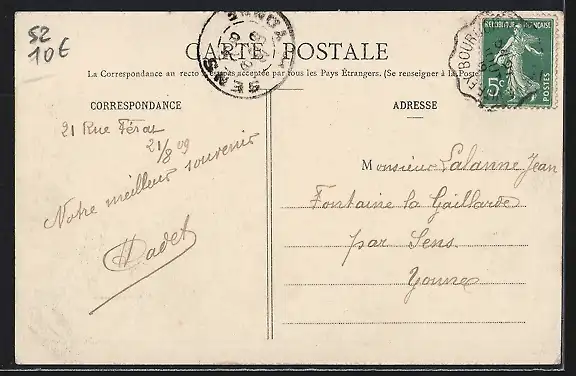 52
10€
CARTE POSTALE
La Correspondance au recto n'est pas acceptée par tous les Pays Étrangers. (Se renseigner à la Poste
CORRESPONDANCE
21 Rue Férat
21/8 09
Notre meilleur souvenir
Dadet
SENS
YONNE
ADRESSE
RÉPUBLIQUE FRANÇAISE
5c
POSTES
Monsieur Lalanne Jean
Fontaine la Gaillarde
par Sens
Yonne